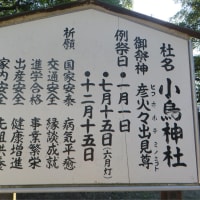 社名 小烏神社
御祭神 彦火々出見尊
ヒコホホデミノミコト
例祭日
・一月一日
・七月十五日(六月灯)
・十二月十五日
祈願
国家安泰 病気平癒
交通安全 縁談成就
進学合格 事業繁栄
出産安全 健康増進
家内安全 先祖供養